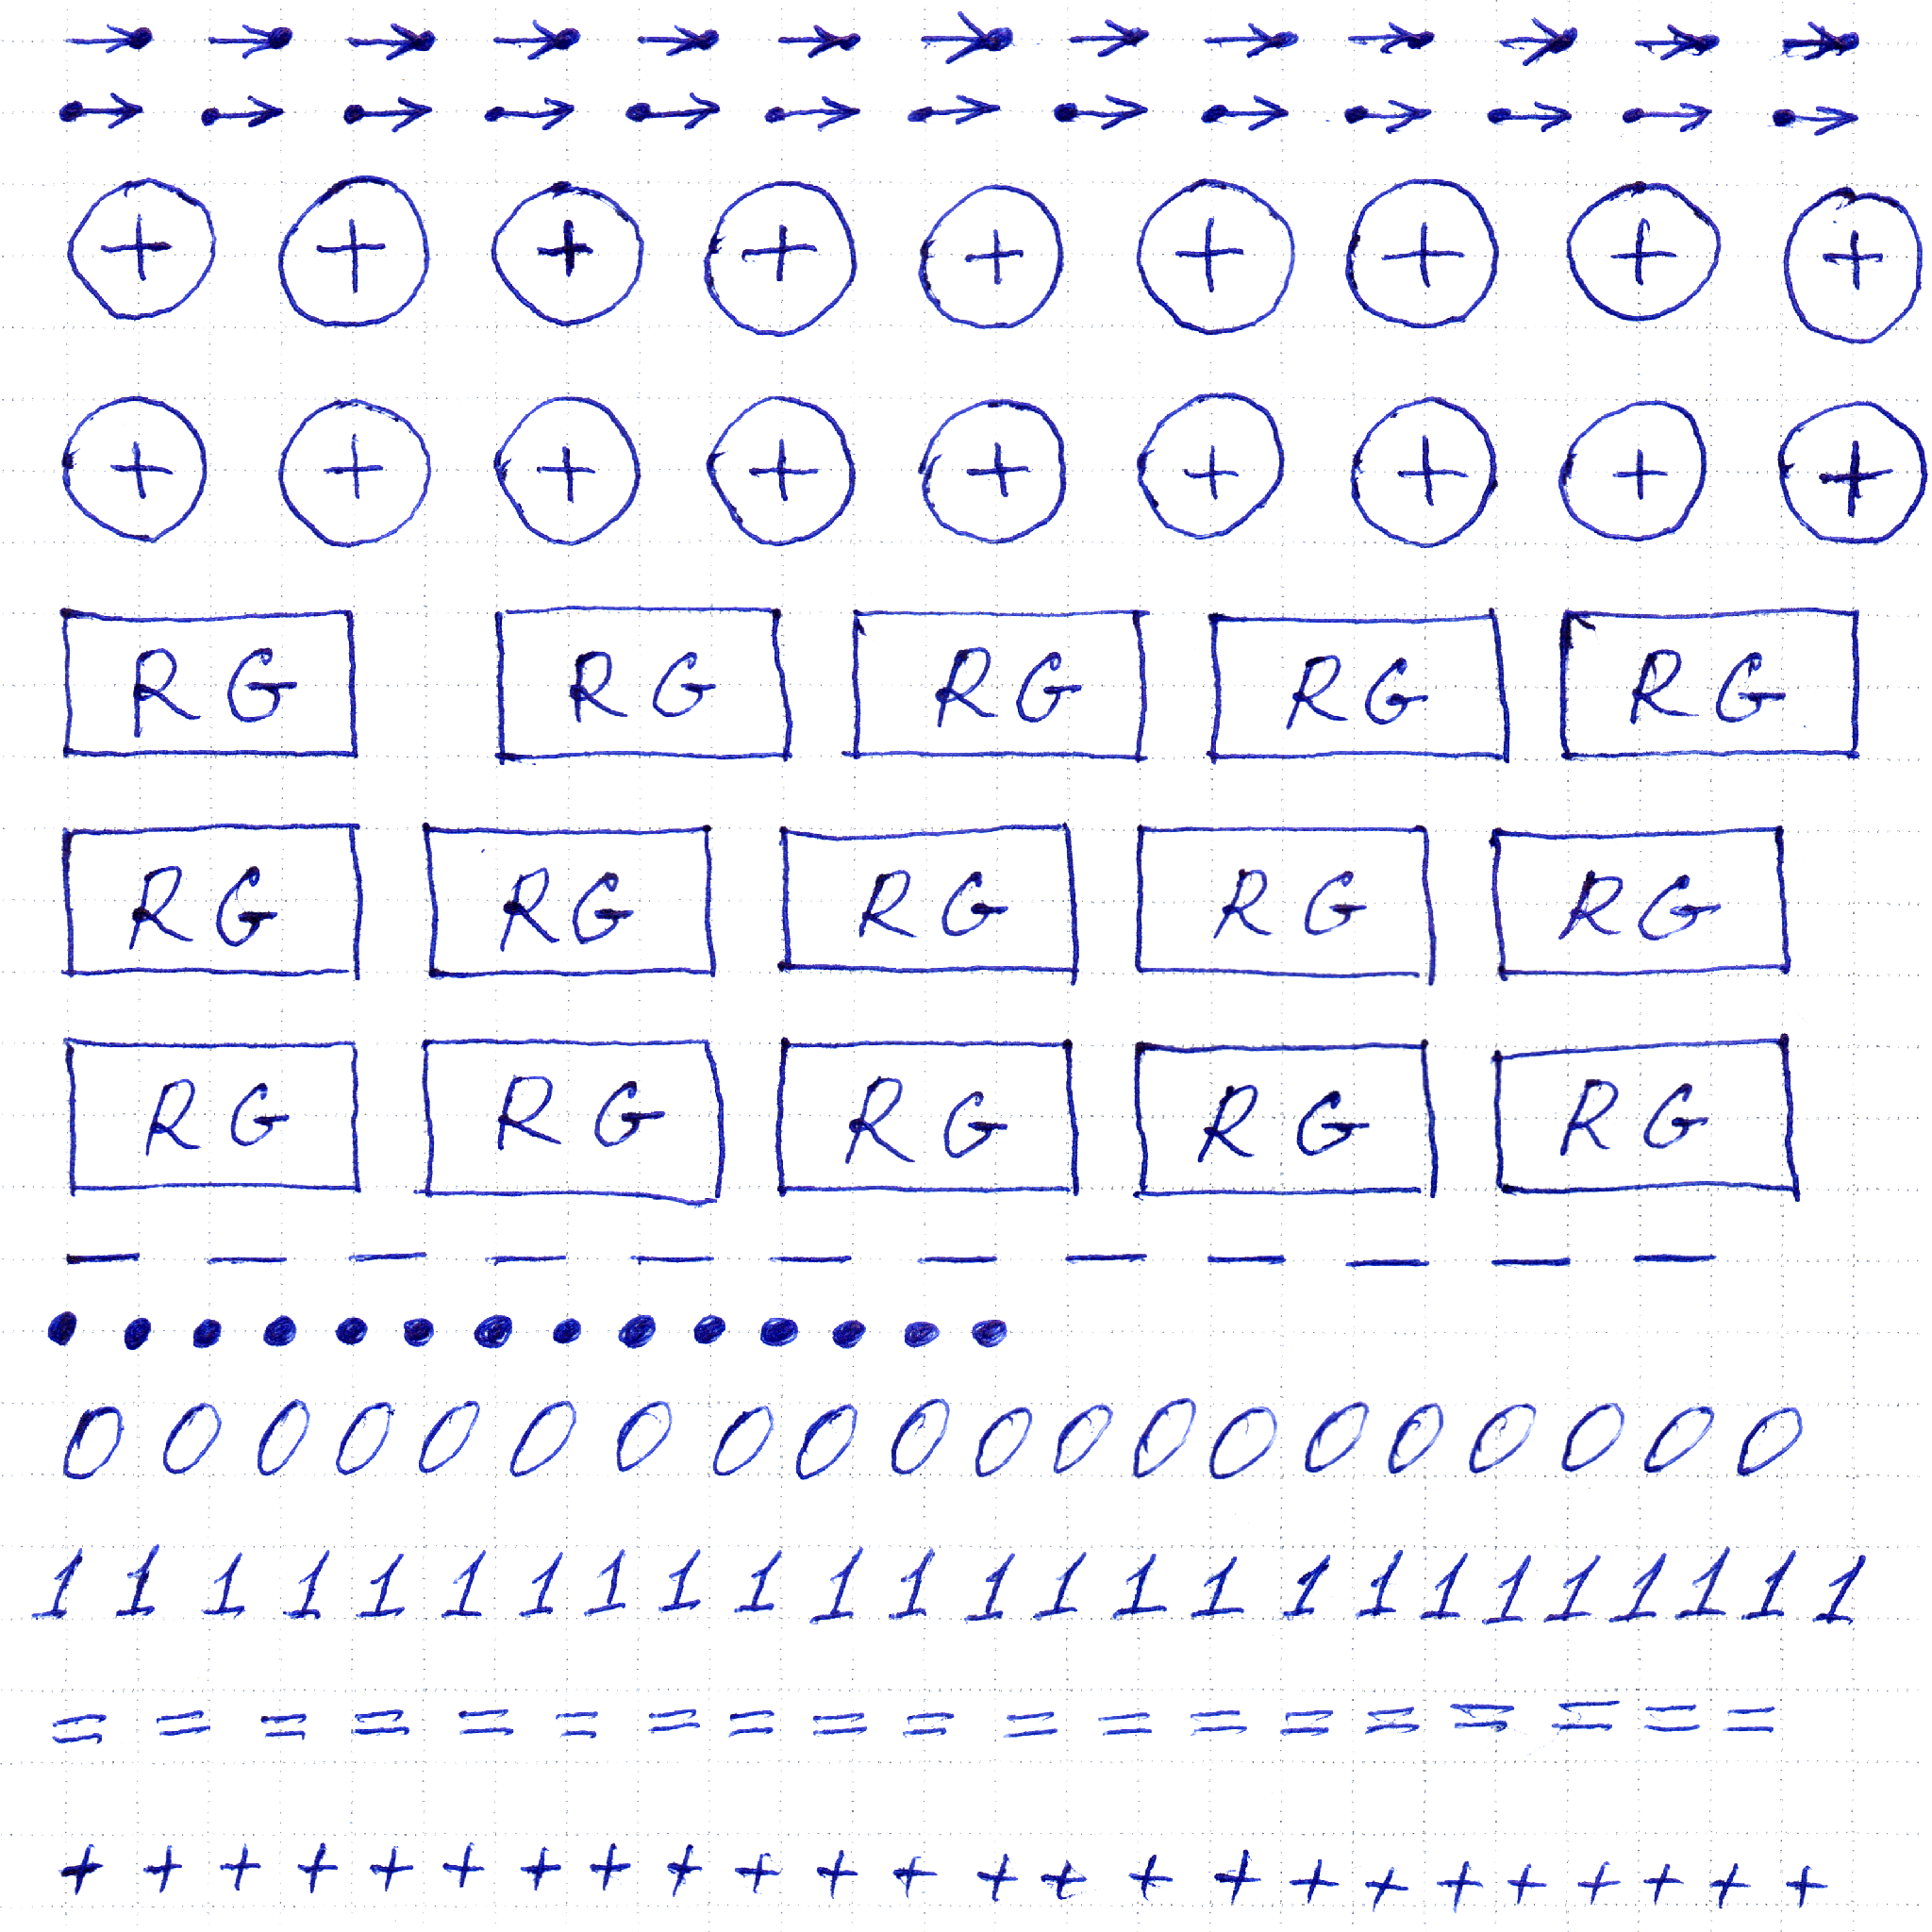 → → → → → → → → → → → → →
→ → → → → → → → → → → → →
+ + + + + + + + +
+ + + + + + + + +
RG RG RG RG RG
RG RG RG RG RG
RG RG RG RG RG
— — — — — — — — — — — —
• • • • • • • • • • • • • •
0 0 0 0 0 0 0 0 0 0 0 0 0 0 0 0 0 0 0 0
1 1 1 1 1 1 1 1 1 1 1 1 1 1 1 1 1 1 1 1 1 1 1 1 1
= = = = = = = = = = = = = = = = = = =
+ + + + + + + + + + + + + + + + + + + + + + + +